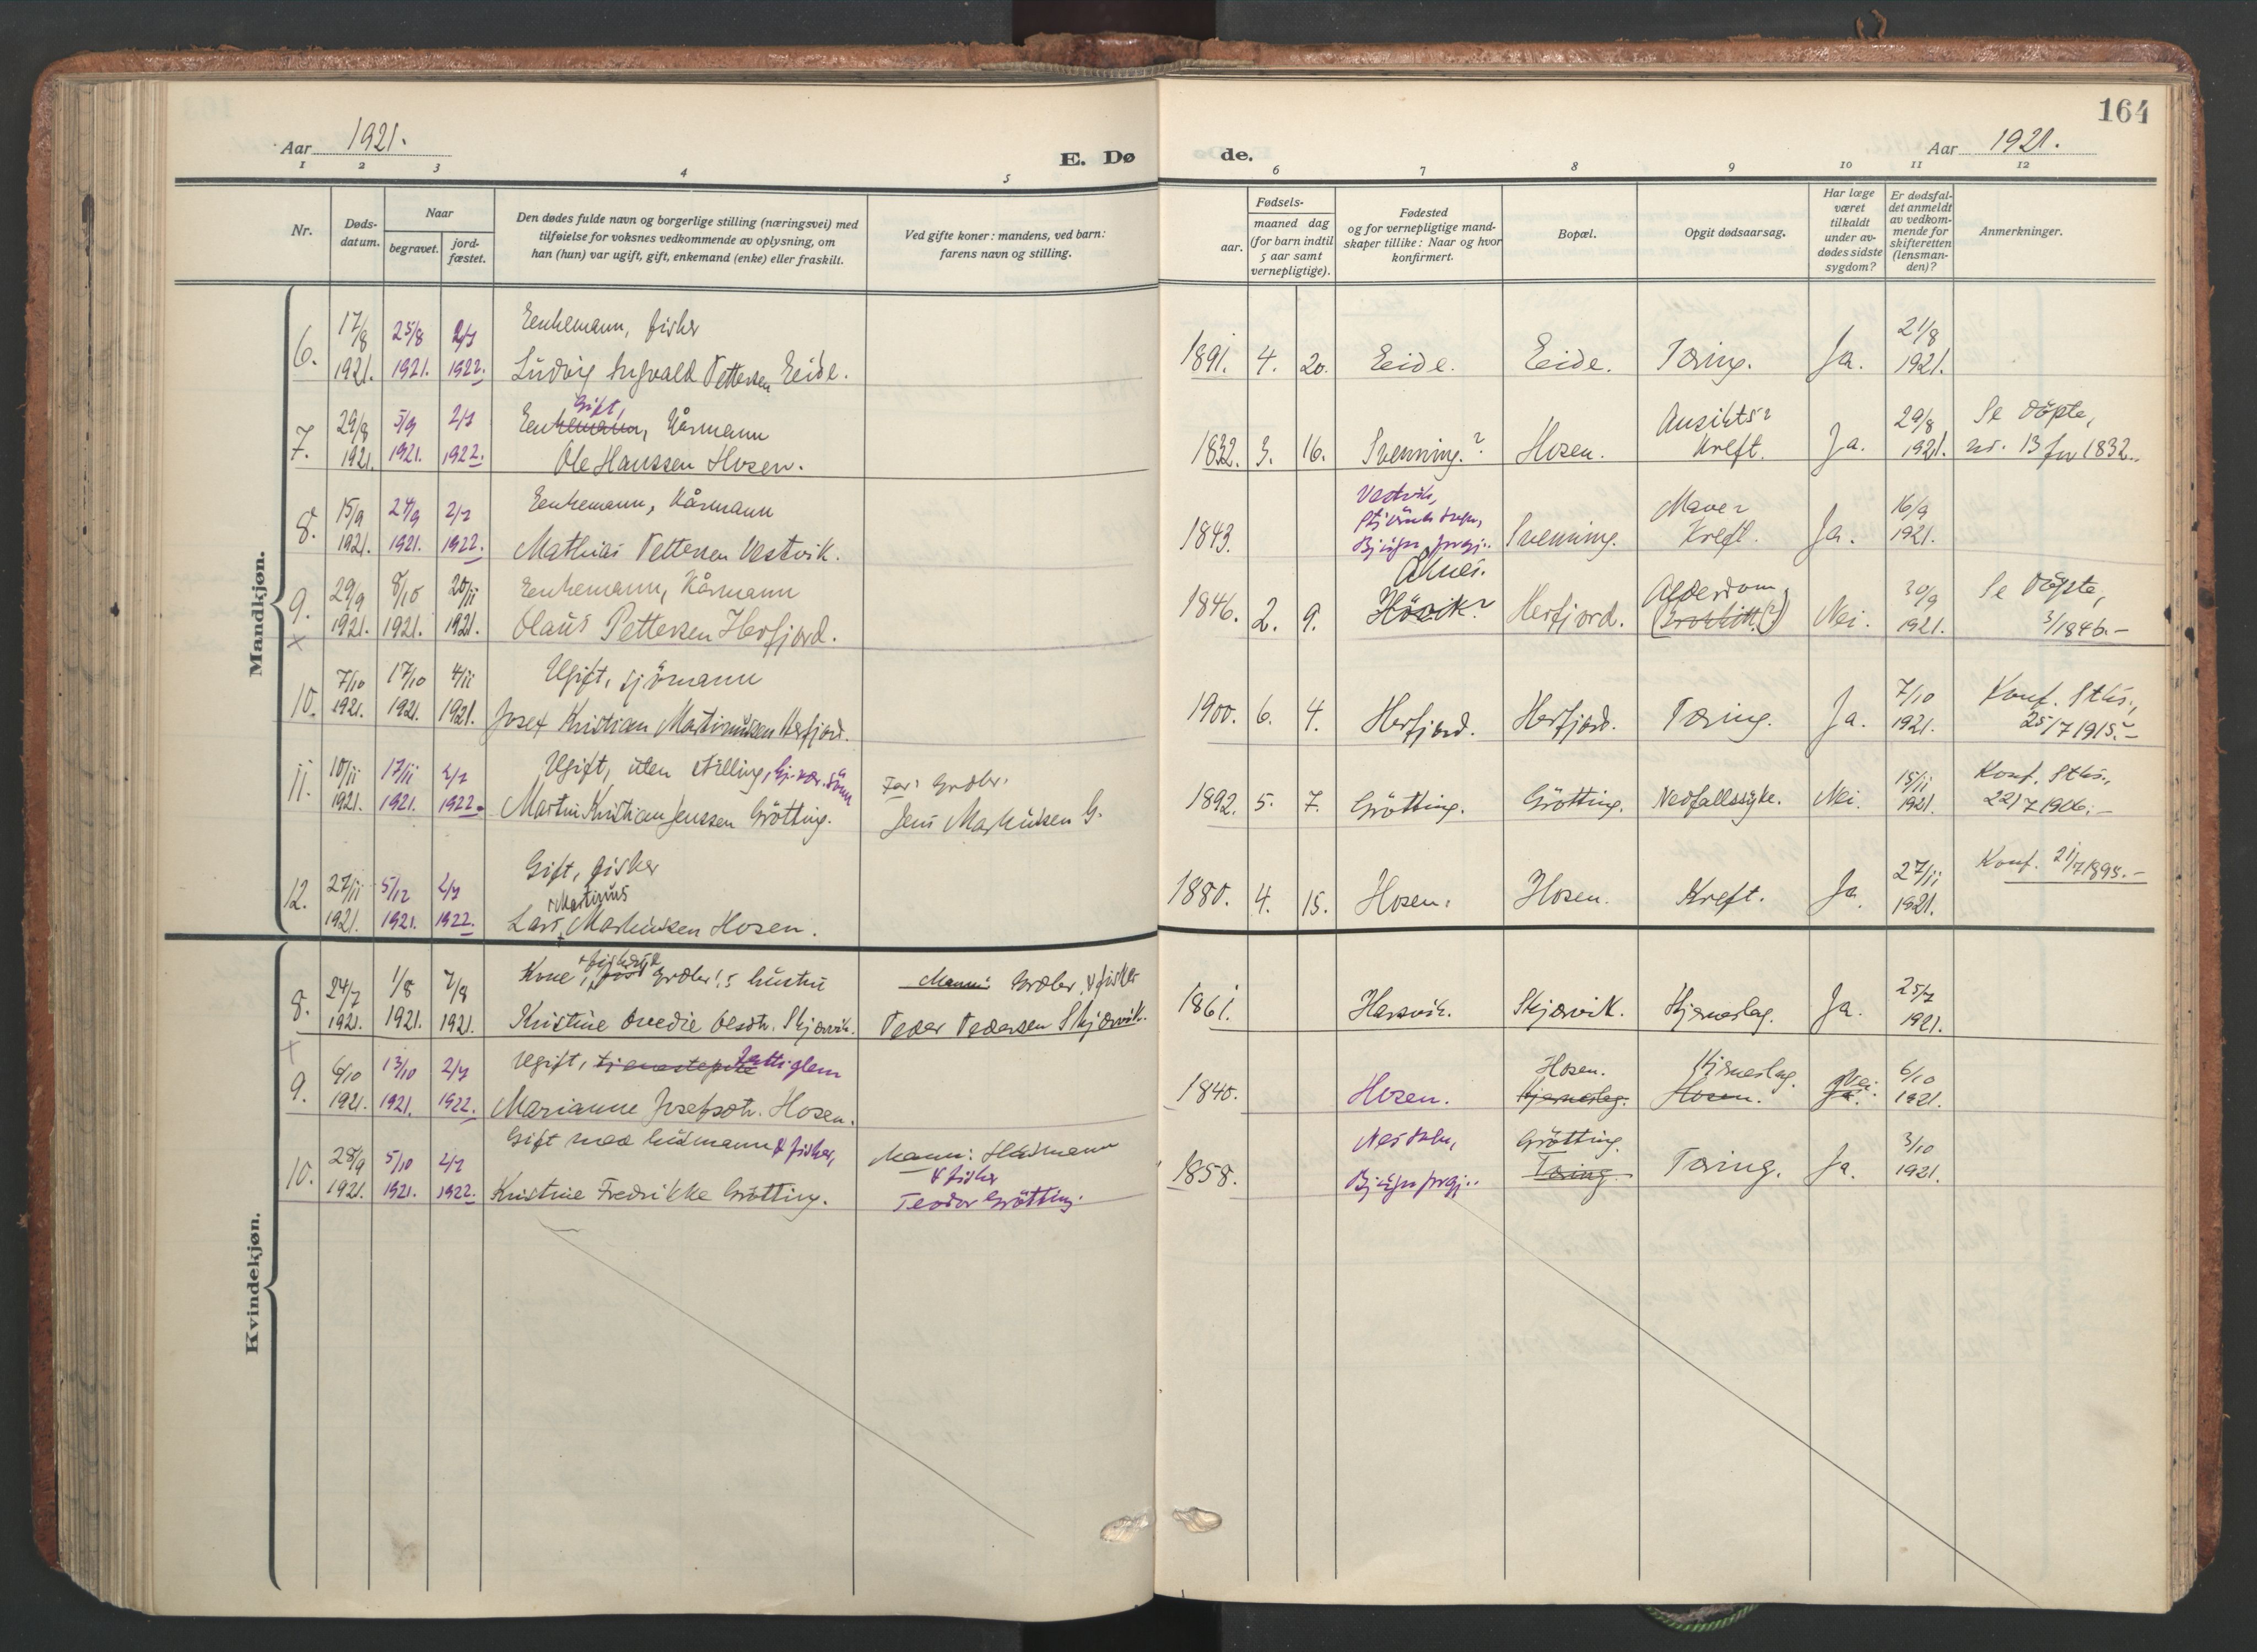 164
Aar 1921.
E. Dø
de.
Aar 1921.
1 2 3 4 5 6 7 8 9 10 11 12
Nr.
Døds-
datum.
Naar
begravet.
jord-
fæstet.
Den dødes fulde navn og borgerlige stilling (næringsvei) med
tilføielse for voksnes vedkommende av oplysning, om
han (hun) var ugift, gift, enkemand (enke) eller fraskilt.
Ved gifte koner: mandens, ved barn:
farens navn og stilling.
Fødsels-
aar.
maaned dag
(for barn indtil
5 aar samt
vernepligtige).
Fødested
og for vernepligtige mand-
skaper tillike: Naar og hvor
konfirmert.
Bopæl.
Opgit dødsaarsag.
Har læge
været
tilkaldt
under av-
dødes sidste
sygdom?
Er dødsfal-
det anmeldt
av vedkom-
mende for
skifteretten
(lensman-
den)?
Anmerkninger.
Mandkjøn.
6. 17/8 1921. 25/8 1921. 2/7 1922.
Eenkemann, fisker
Ludvig Ingvald Pettersen Eide.
1891. 4. 20. Eide. Eide. Tæring. Ja. 21/8 1921.
7. 29/8 1921. 5/9 1921. 2/7 1922.
Gift,
Eenkemann, Kårmann
Ole Hanssen Hosen.
1832. 3. 16. Svenning.? Hosen. Ansikts-
Kreft. Ja. 29/8 1921. Se döpte,
nr. 13 for 1832.
8. 15/9 1921. 24/9 1921. 2/7 1922.
Eenkemann, Kårmann
Mathias Pettersen Vastvik.
1843. Vastvik,
Bjugn prgj.. Svenning. Mave-
Kreft. Ja. 16/9 1921.
9. 29/9 1921. 8/10 1921. 20/11 1921.
Eenkemann, Kårmann
Olaus Pettersen Herfjord.
1846. 2. 9. Hövik? Herfjord. Alderdom
Nei. 30/9 1921. Se döpte,
3/1846.-
10. 7/10 1921. 17/10 1921. 4/11 1921.
Ugift, sjömann
Josef Kristian Martinussen Herfjord.
1900. 6. 4. Herfjord. Herfjord. Tæring. Ja. 7/10 1921. Konf. Stks.,
25/7 1915.-
11. 10/11 1921. 17/11 1921. 2/7 1922.
Ugift, uten stilling,
Martin Kristian Jenssen Grötting.
Far: Grdbr.
Jens Markussen G.
1892. 5. 7. Grötting. Grötting. Nedfallssyke. Nei. 15/11 1921. Konf. Stks.,
22/7 1906.-
12. 27/11 1921. 5/12 1921. 2/7 1922.
Gift, fisker
Martinus
Lars Markussen Hosen.
1880. 4. 15. Hosen. Hosen. Kreft. Ja. 27/11 1921. Konf. 21/7 1895.-
Kvindekjøn.
8. 24/7 1921. 1/8 1921. 7/8 1921.
Kone, Grdbr.'s hustru
Kristine Ovedie Olsdtr. Skjærvik.
Mann: Grdbr. & fisker
Peder Pedersen Skjærvik.
1861. Harsvik. Skjærvik. Hjerneslag. Ja. 25/7 1921.
9. 6/10 1921. 13/10 1921. 2/7 1922.
Ugift, tjenestepike fattiglem
Marianne Josefsdtr. Hosen.
1840. Hosen. Hosen.
Hjerneslag. Hjerneslag.
Hosen. Nei.
Ja. 6/10 1921.
10. 28/9 1921. 5/10 1921. 2/7 1922.
Gift med husmann & fisker,
Kristine Fredrikke Grötting.
Mann: Husmann
& fisker
Teodor Grötting.
1858. Bjugn prgj.. Grötting.
Tæring. Tæring. Ja. 3/10 1921.